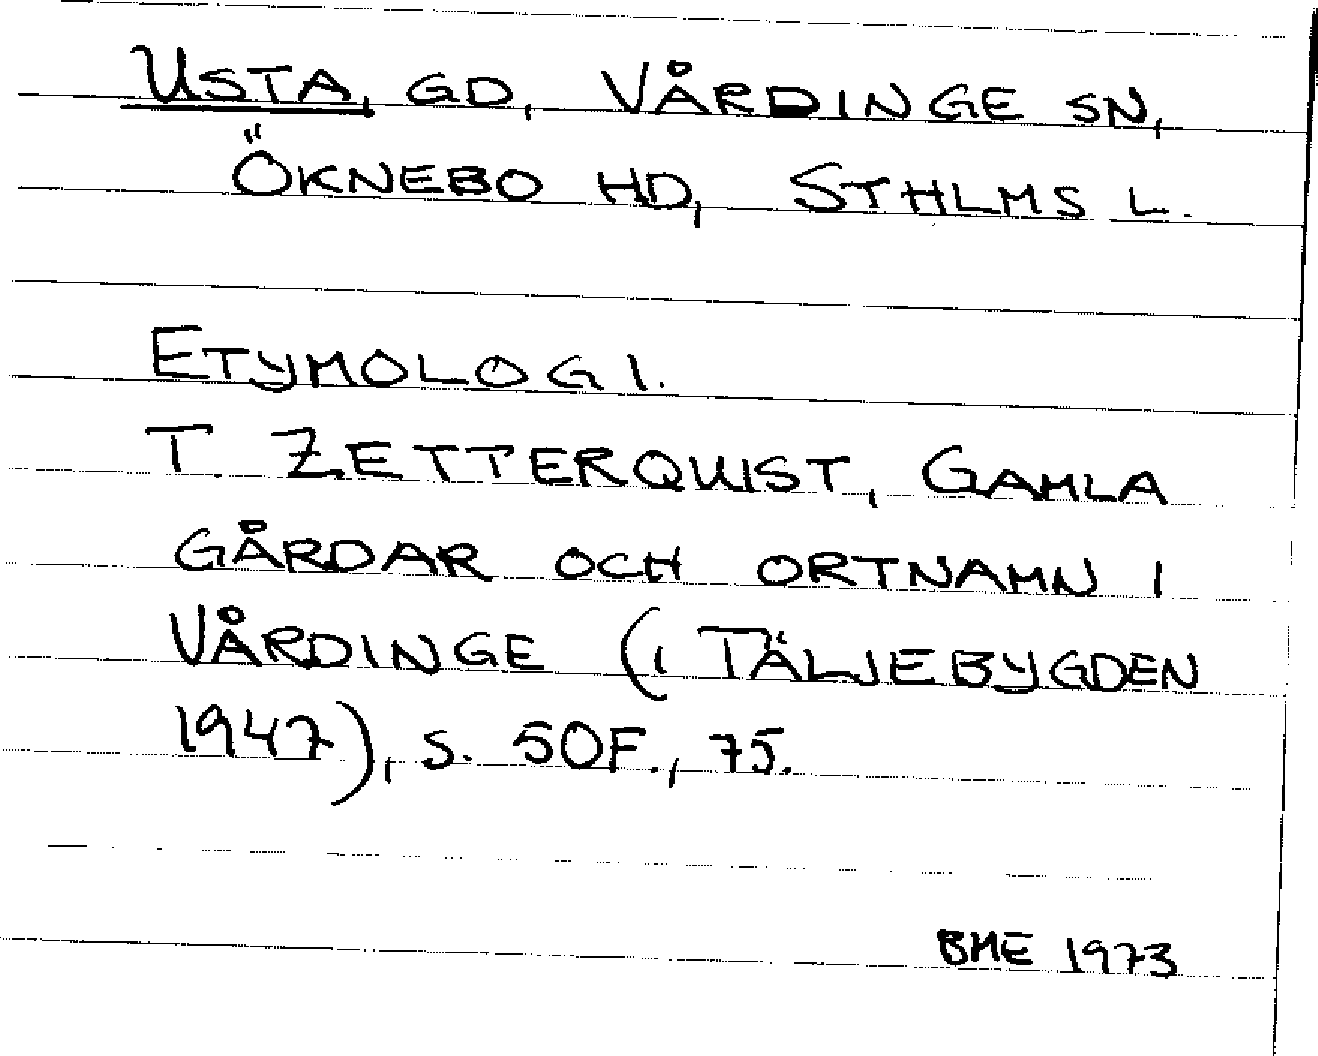 USTA, GD, VÅRDINGE SN,
ÖKNEBO HD, STHLMS L.
ETYMOLOGI.
T. ZETTERQUIST, GAMLA
GÅRDAR OCH ORTNAMN I
VÅRDINGE (I TÄLJEBYGDEN
1947), S. 50F., 75.
BME 1973